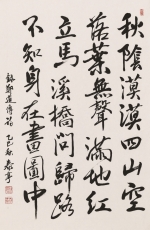 秋陰漠漠四山空
落葉無聲滿地紅
立馬溪橋問歸路
不知身在畫圖中
錄鄭道傳詩 乙巳